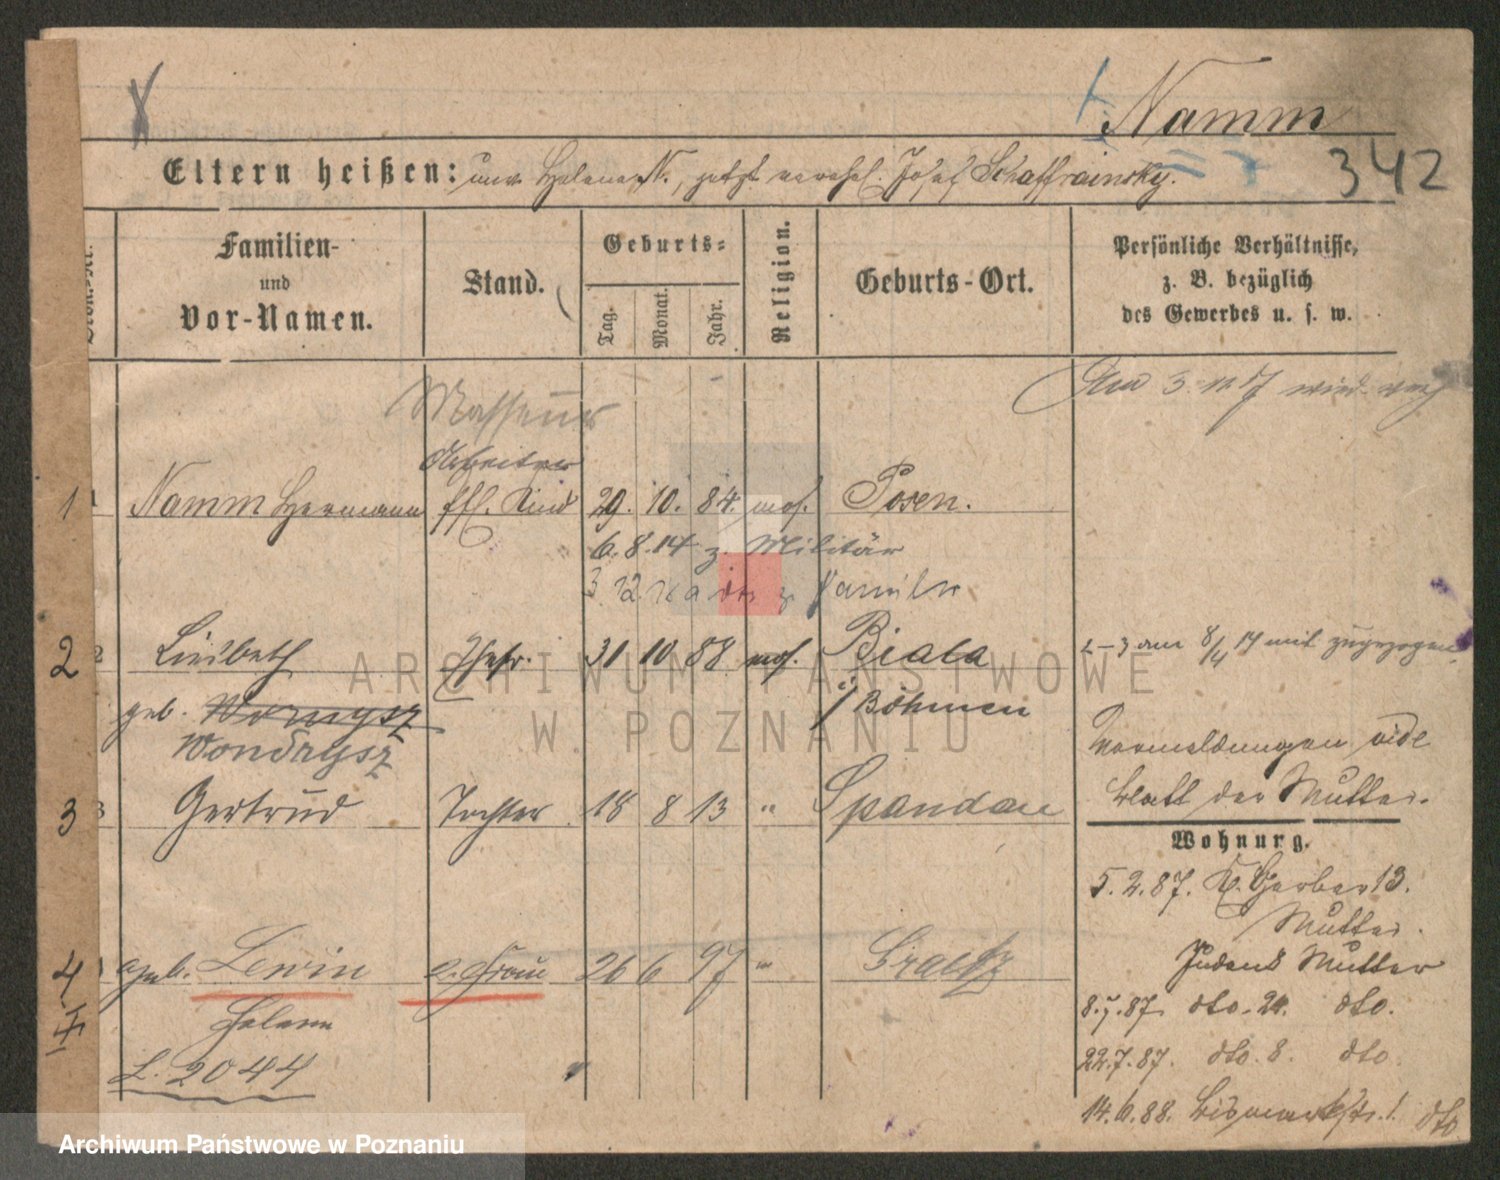 Namm
342
Eltern heißen: unv. Helene N., jetzt verehel. Josef Schaffrainsky.
Familien-
und
Vor-Namen.
Stand.
Geburts-
Tag.
Monat.
Jahr.
Religion.
Geburts-Ort.
Persönliche Verhältnisse,
z. B. bezüglich
des Gewerbes u. s. w.
Masseur
Arbeiter
1 Namm Hermann Kind 29. 10. 84. mos. Posen.
6.8.14 z. Militär
3 12 z Familie
2 Liesbeth Ehefr. 31 10 88 mos. Biala
i/Böhmen
2-3 am 8/4 14 mit zugezogen
geb. Wornysz
Wondrysz
Vormeldungen vide
Blatt der Mutter.
3 Gertrud Tochter 18 8 13 " Spandau
Wohnung.
5.2.87. Gerber 13.
Mutter.
4 geb. Lewin 2. Frau 26 6 97 " Graetz
Judenst Mutter
Helene
8.7.87 dto. 24. dto.
L. 2044
22.7.87. dto. 8. dto.
14.6.88. Bismarckstr. 1. dto
ARCHIWUM PAŃSTWOWE
W POZNANIU
Archiwum Państwowe w Poznaniu